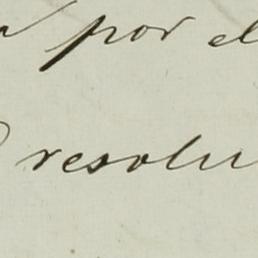 por el
resolu